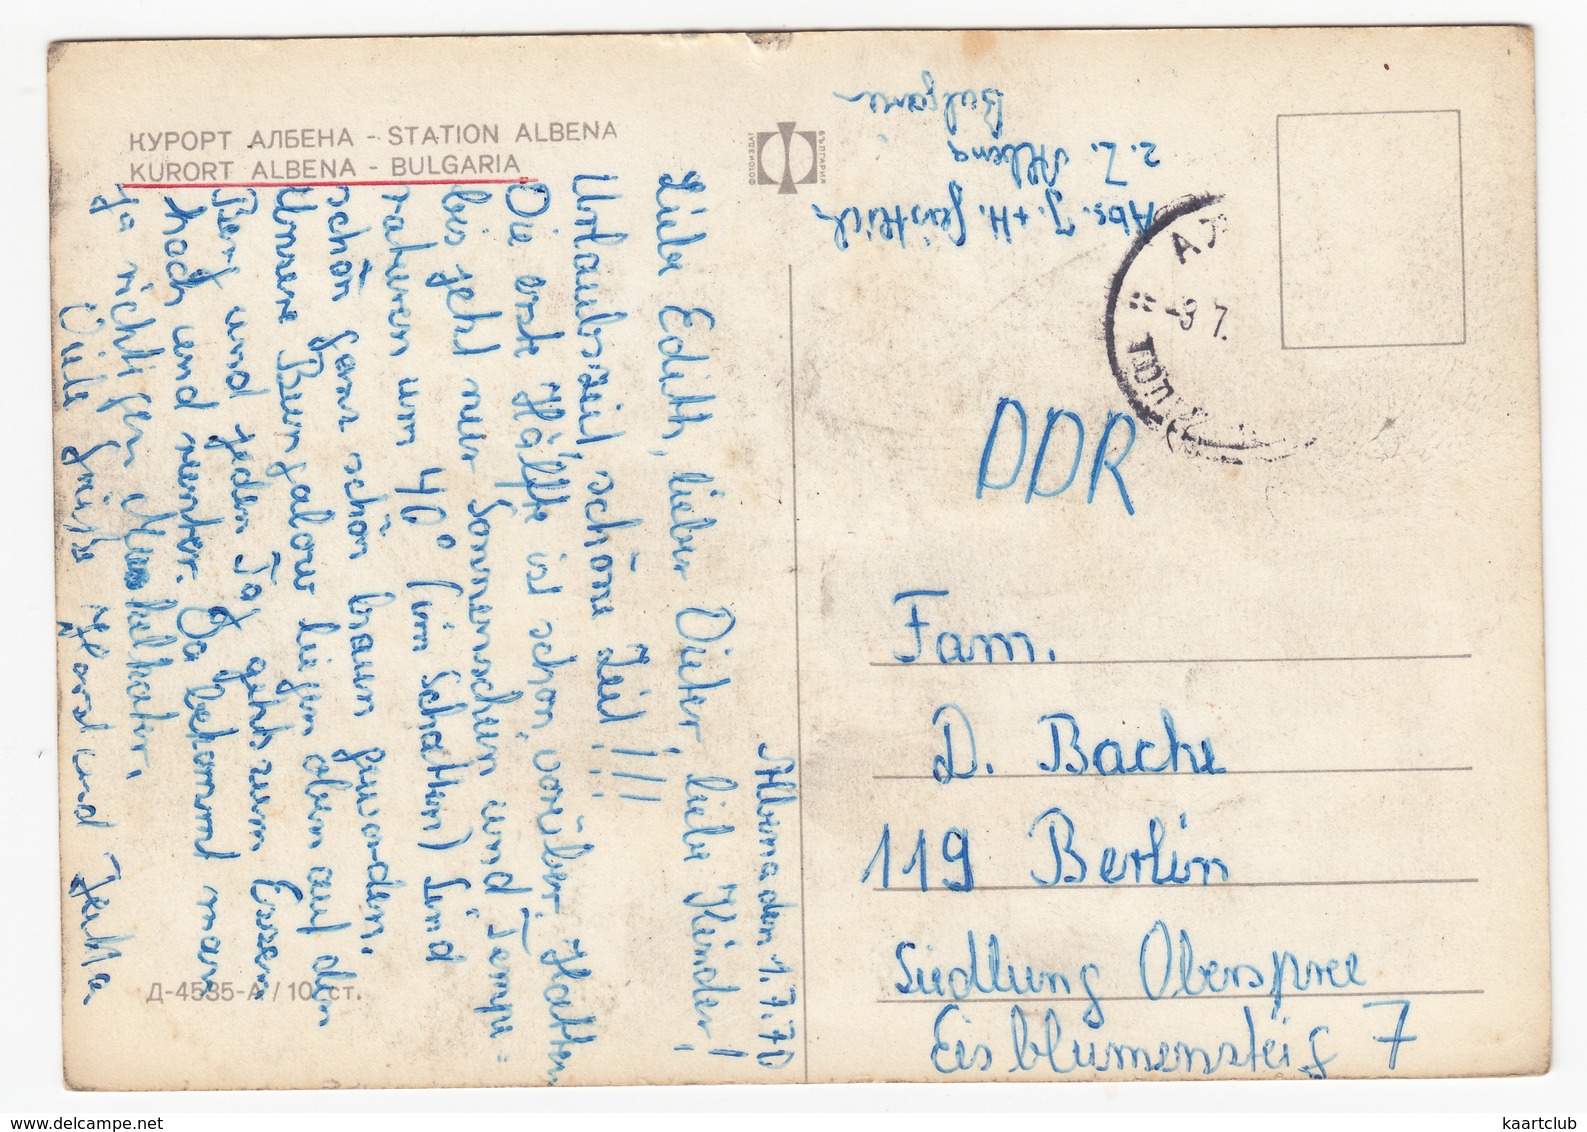 КУРОРТ АЛБЕНА - STATION ALBENA
KURORT ALBENA - BULGARIA
ФОТОИЗДАТ
БЪЛГАРИЯ
Albena den 1.7.70
Liebe Edith, lieber Dieter, liebe Kinder!
Urlaubszeit schöne Zeit!!!
Die erste Hälfte ist schon vorüber. Hatten
bis jetzt nur Sonnenschein und Tempe-
raturen um 40° (im Schatten) Sind
schon ganz schön braun geworden.
Unsere Bungalow liegen oben auf dem
Berg und jeden Tag gehts zum Essen
hoch und runter. Da bekommt man
ja richtigen Muskelkater.
Viele Grüße Horst und Jutta
Abs. J. + H.
z. Z. Albena
Bulgarien
-3 7.
DDR
Fam.
D. Bache
119 Berlin
Siedlung Oberspree
Eisblumensteig 7
Д-4535-А / 10 ст.
www.delcampe.net
kaartclub